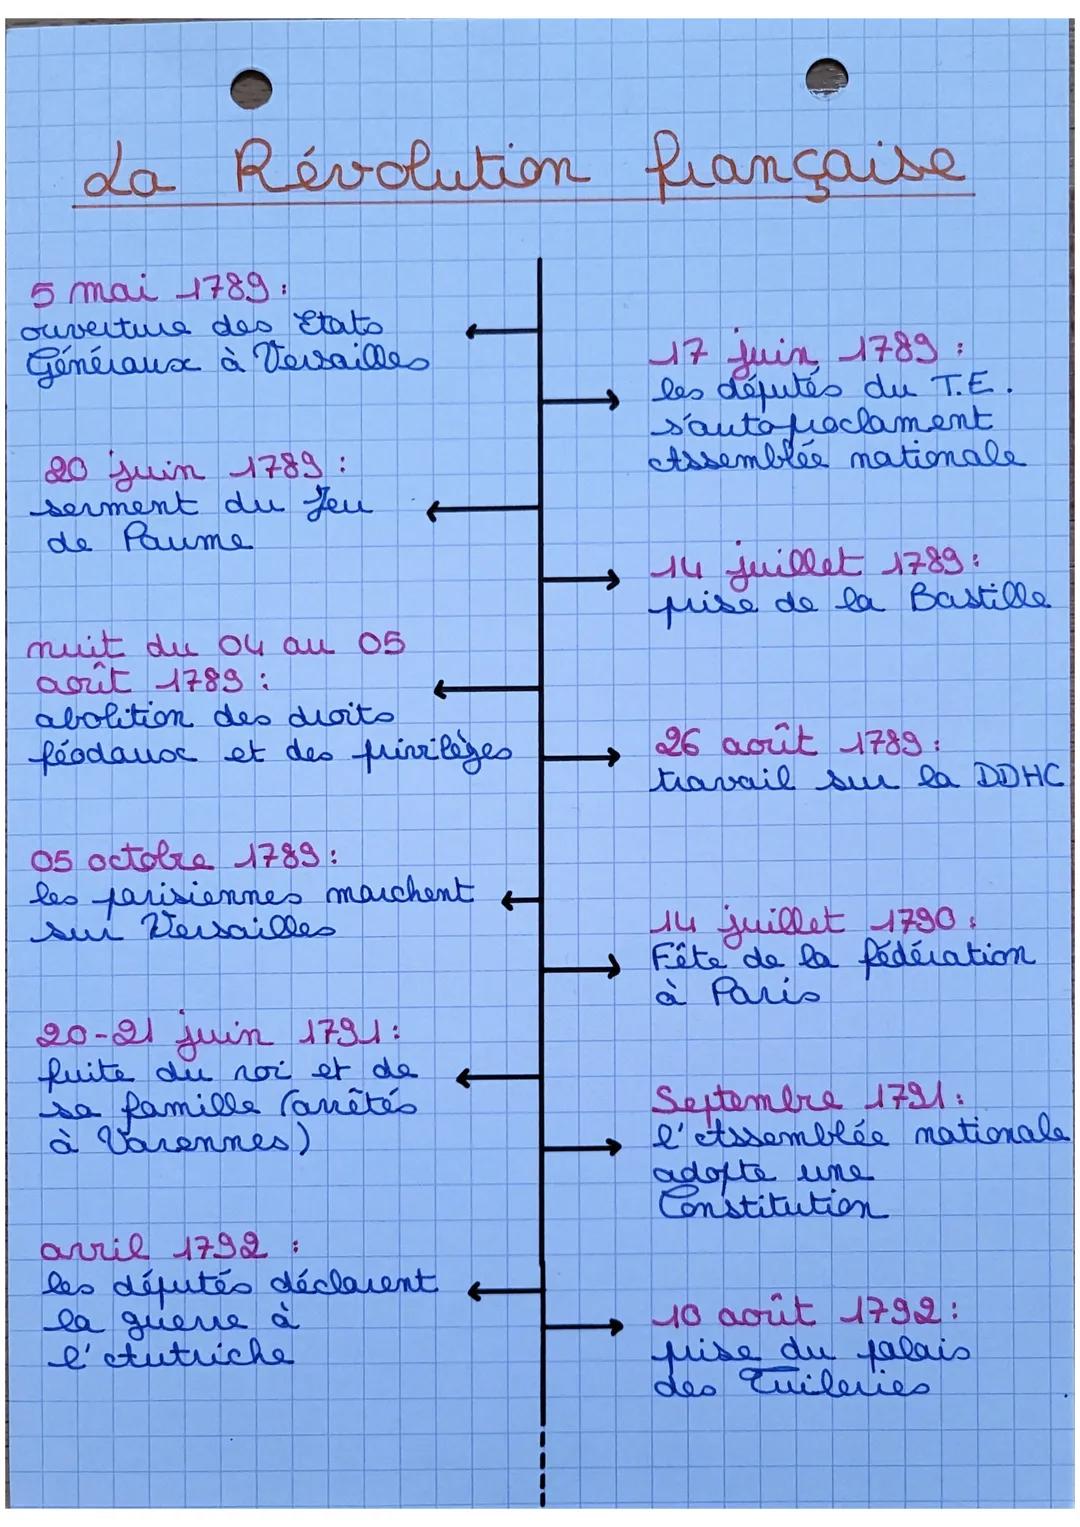 La Révolution française
5 mai 1789 :
ouverture des Etats
Généraux à Versailles
17 juin 1789 :
les députés du T.E.
s'autoproclament
Assemblée nationale
20 juin 1789 :
serment du Jeu
de Paume
14 juillet 1789 :
prise de la Bastille
nuit du 04 au 05
août 1789 :
abolition des droits
féodaux et des privilèges
26 août 1789 :
travail sur la DDHC
05 octobre 1789 :
les parisiennes marchent
sur Versailles
14 juillet 1790 :
Fête de la fédération
à Paris
20-21 juin 1791 :
fuite du roi et de
sa famille (arrêtés
à Varennes)
Septembre 1791 :
l'Assemblée nationale
adopte une
Constitution
avril 1792 :
les députés déclarent
la guerre à
l'Autriche
10 août 1792 :
prise du palais
des Tuileries